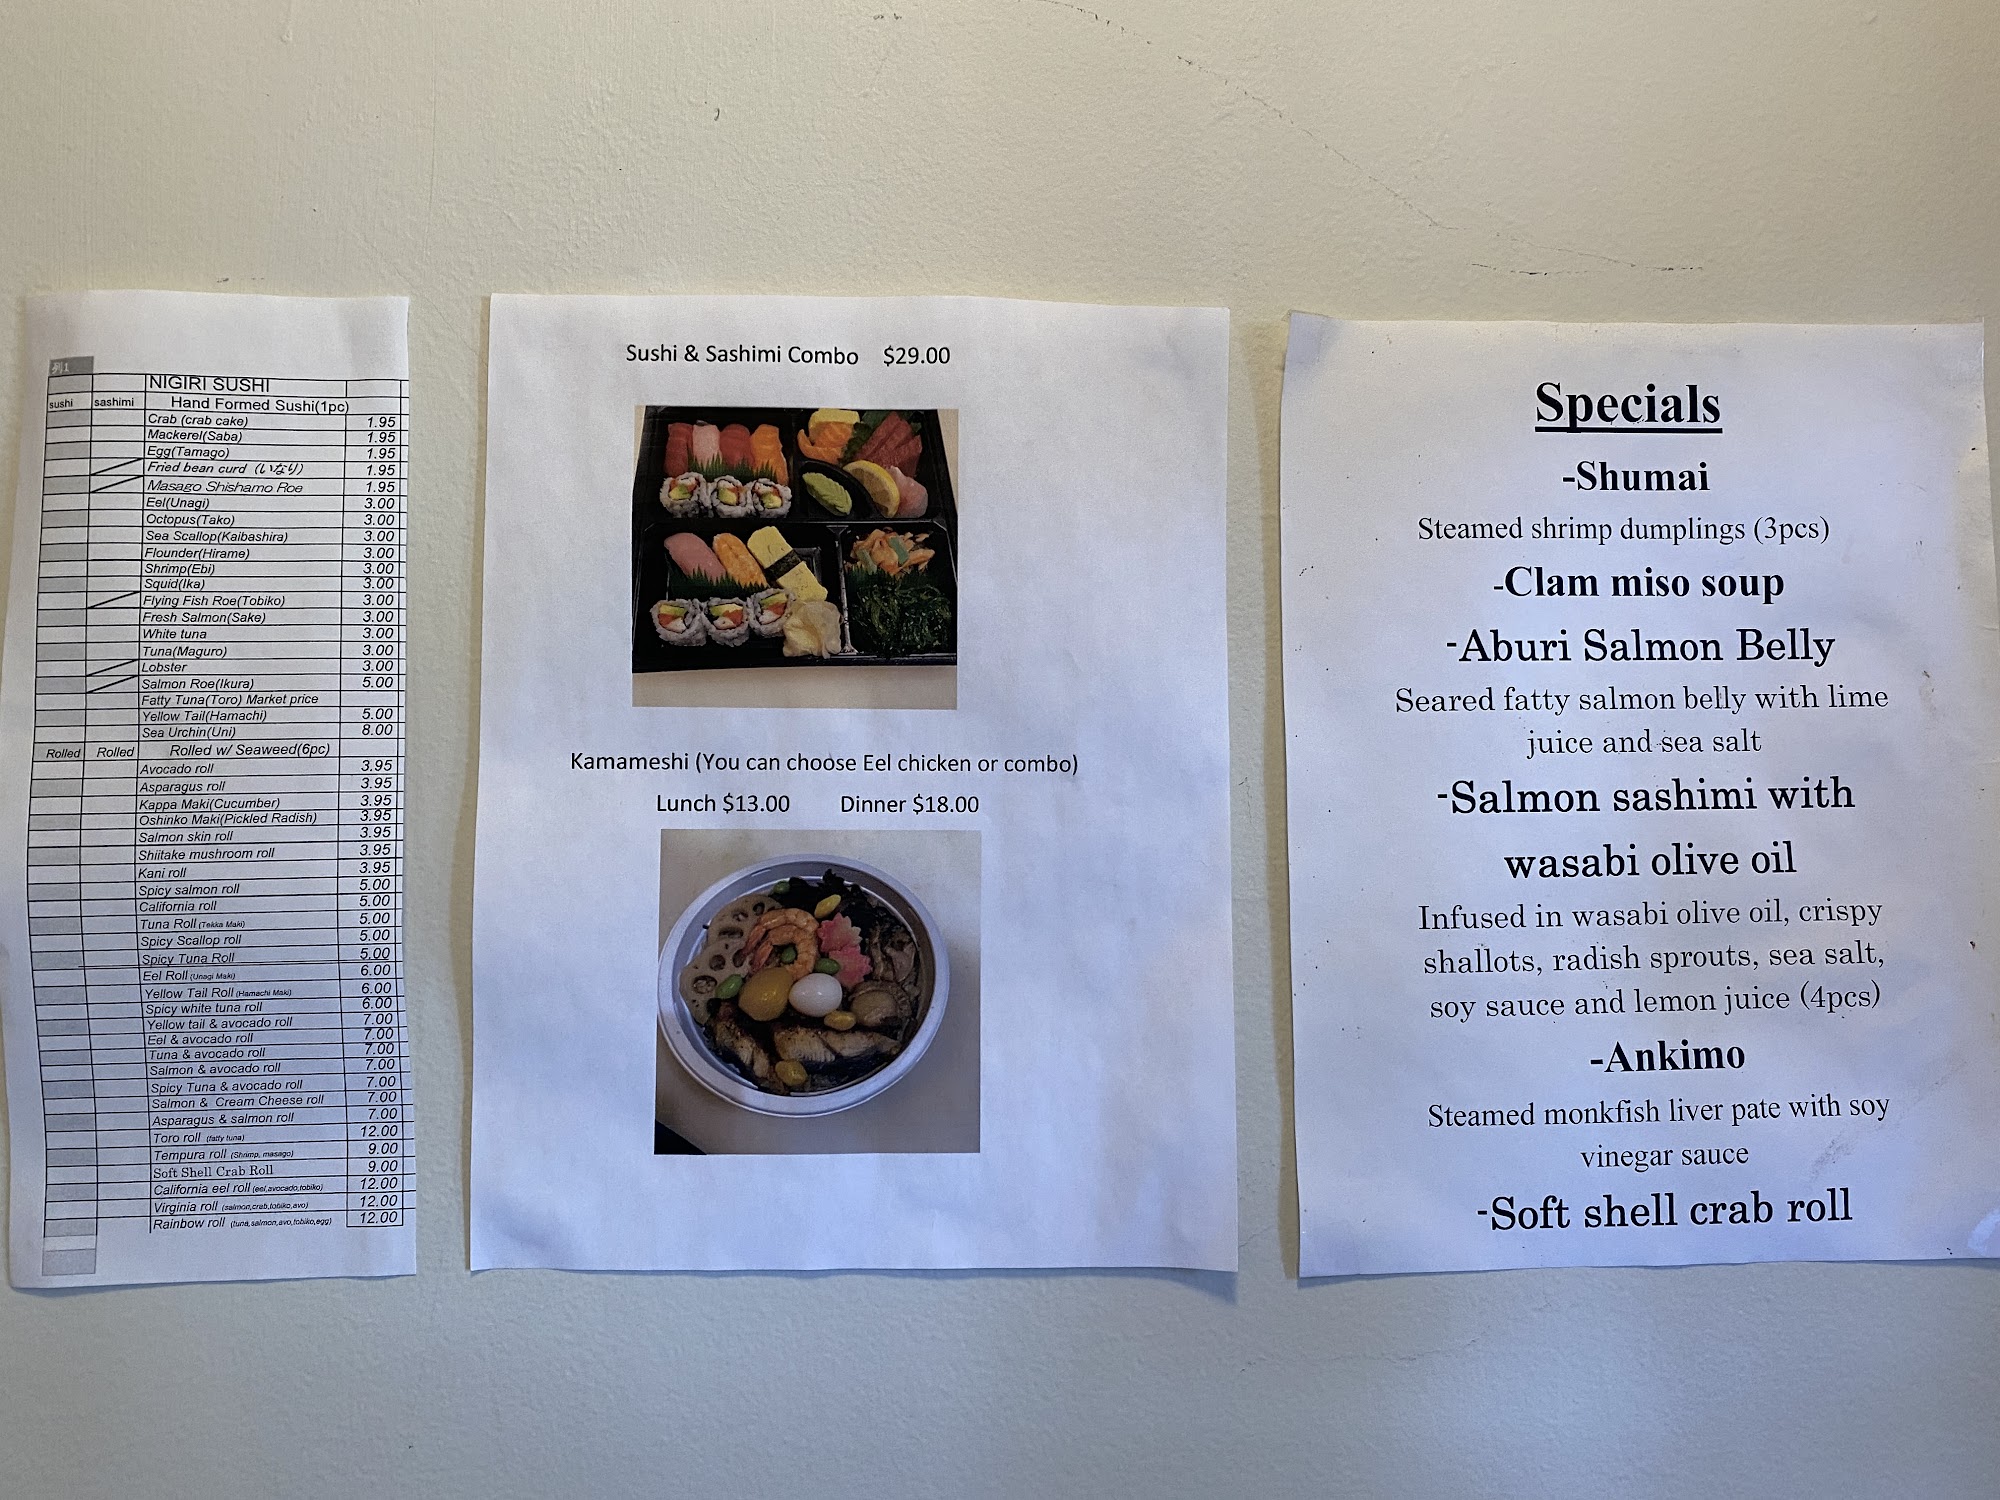 列1
NIGIRI SUSHI
sushi sashimi Hand Formed Sushi(1pc)
Crab (crab cake) 1.95
Mackerel(Saba) 1.95
Egg(Tamago) 1.95
Fried bean curd (いなり) 1.95
Masago Shishamo Roe 1.95
Eel(Unagi) 3.00
Octopus(Tako) 3.00
Sea Scallop(Kaibashira) 3.00
Flounder(Hirame) 3.00
Shrimp(Ebi) 3.00
Squid(Ika) 3.00
Flying Fish Roe(Tobiko) 3.00
Fresh Salmon(Sake) 3.00
White tuna 3.00
Tuna(Maguro) 3.00
Lobster 3.00
Salmon Roe(Ikura) 5.00
Fatty Tuna(Toro) Market price
Yellow Tail(Hamachi) 5.00
Sea Urchin(Uni) 8.00
Rolled Rolled Rolled w/ Seaweed(6pc)
Avocado roll 3.95
Asparagus roll 3.95
Kappa Maki(Cucumber) 3.95
Oshinko Maki(Pickled Radish) 3.95
Salmon skin roll 3.95
Shiitake mushroom roll 3.95
Kani roll 3.95
Spicy salmon roll 5.00
California roll 5.00
Tuna Roll (Tekka Maki) 5.00
Spicy Scallop roll 5.00
Spicy Tuna Roll 5.00
Eel Roll (Unagi Maki) 6.00
Yellow Tail Roll (Hamachi Maki) 6.00
Spicy white tuna roll 6.00
Yellow tail & avocado roll 7.00
Eel & avocado roll 7.00
Tuna & avocado roll 7.00
Salmon & avocado roll 7.00
Spicy Tuna & avocado roll 7.00
Salmon & Cream Cheese roll 7.00
Asparagus & salmon roll 7.00
Toro roll (fatty tuna) 12.00
Tempura roll (Shrimp, masago) 9.00
Soft Shell Crab Roll 9.00
California eel roll (eel,avocado,tobiko) 12.00
Virginia roll (salmon,crab,tobiko,avo) 12.00
Rainbow roll (tuna,salmon,avo,tobiko,egg) 12.00
Sushi & Sashimi Combo $29.00
Kamameshi (You can choose Eel chicken or combo)
Lunch $13.00 Dinner $18.00
Specials
-Shumai
Steamed shrimp dumplings (3pcs)
-Clam miso soup
-Aburi Salmon Belly
Seared fatty salmon belly with lime
juice and sea salt
-Salmon sashimi with
wasabi olive oil
Infused in wasabi olive oil, crispy
shallots, radish sprouts, sea salt,
soy sauce and lemon juice (4pcs)
-Ankimo
Steamed monkfish liver pate with soy
vinegar sauce
-Soft shell crab roll